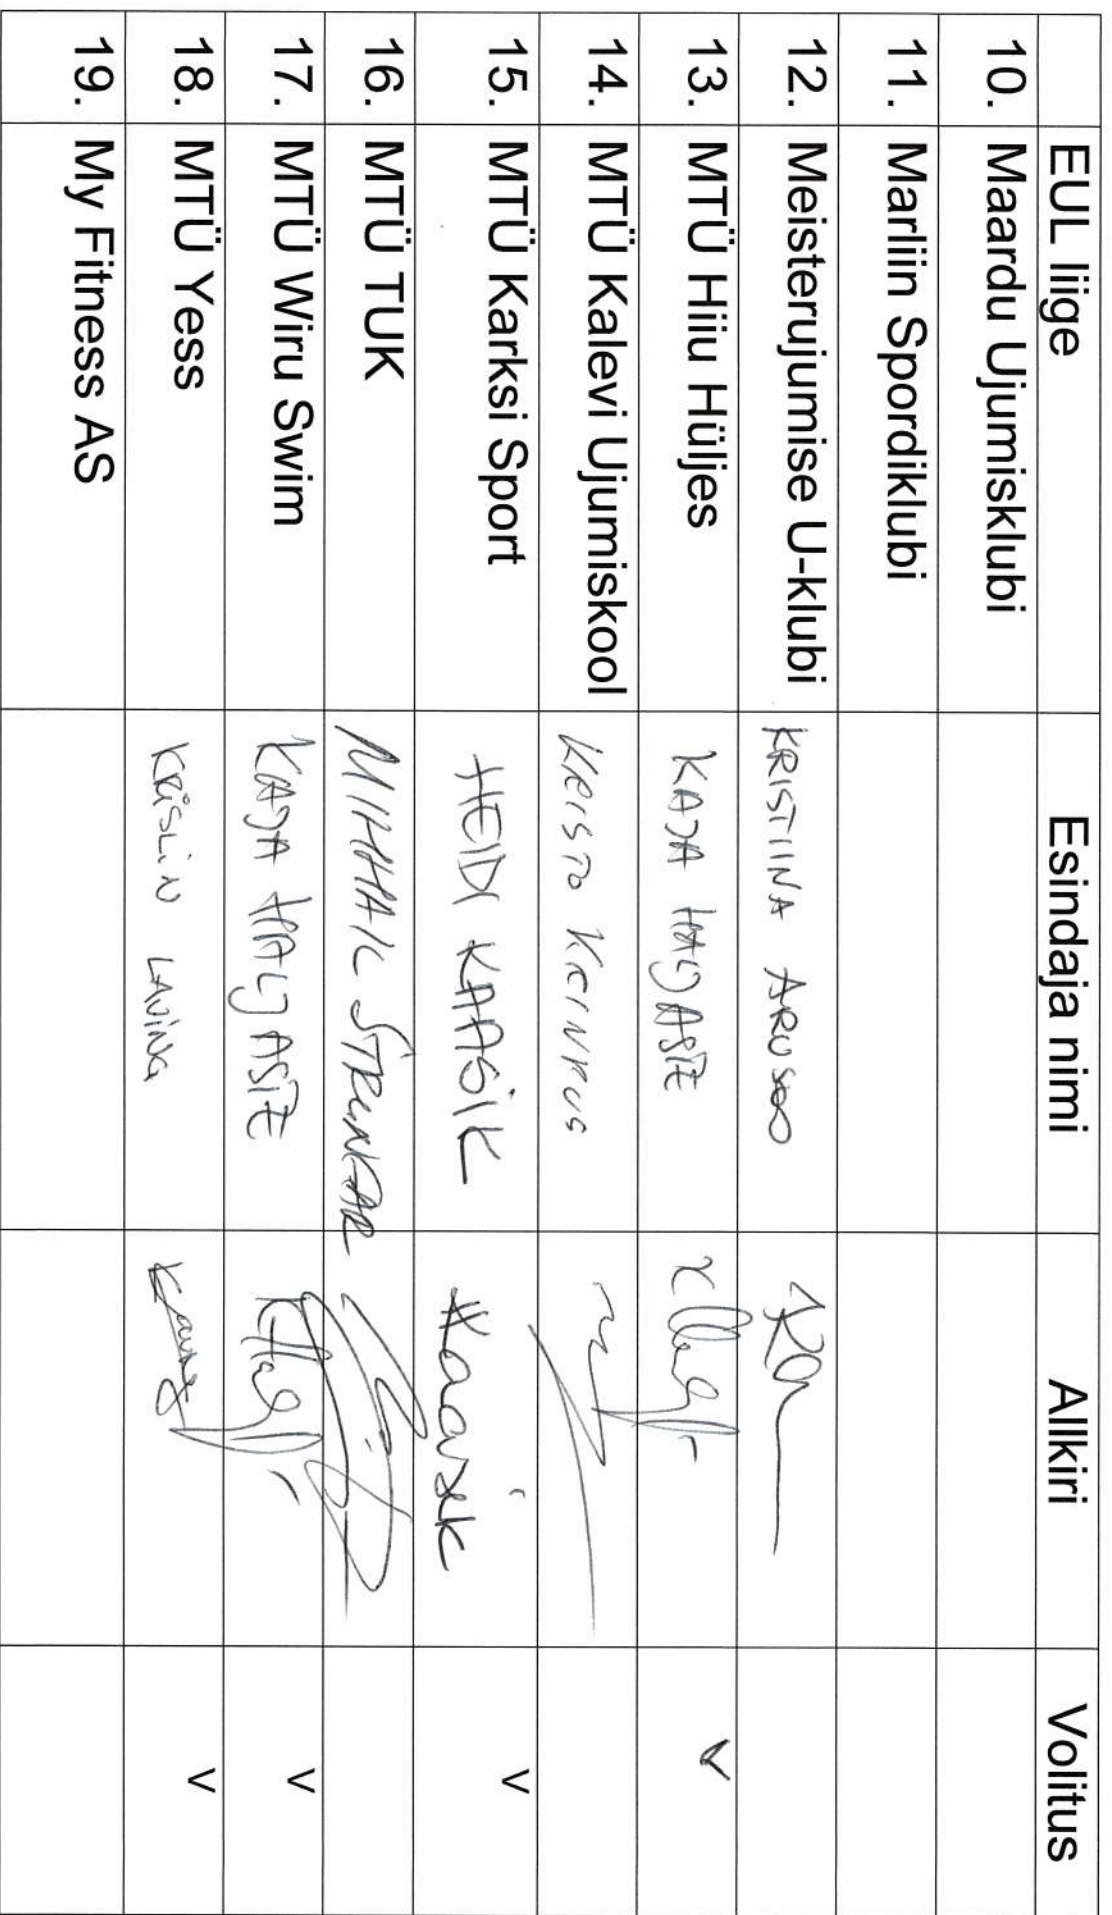 EUL liige Esindaja nimi Allkiri Volitus
10. Maardu Ujumisklubi
11. Marliin Spordiklubi
12. Meisterujumise U-klubi KRISTIINA ARUSOO
13. MTÜ Hiiu Hüljes KAJA HALJASTE V
14. MTÜ Kalevi Ujumiskool KRISTO KEINPUS
15. MTÜ Karksi Sport HEIDI KAASIK Kaasik V
16. MTÜ TUK MIHHAIL
17. MTÜ Wiru Swim KAJA HALJASTE V
18. MTÜ Yess KRISLIN LAVING V
19. My Fitness AS